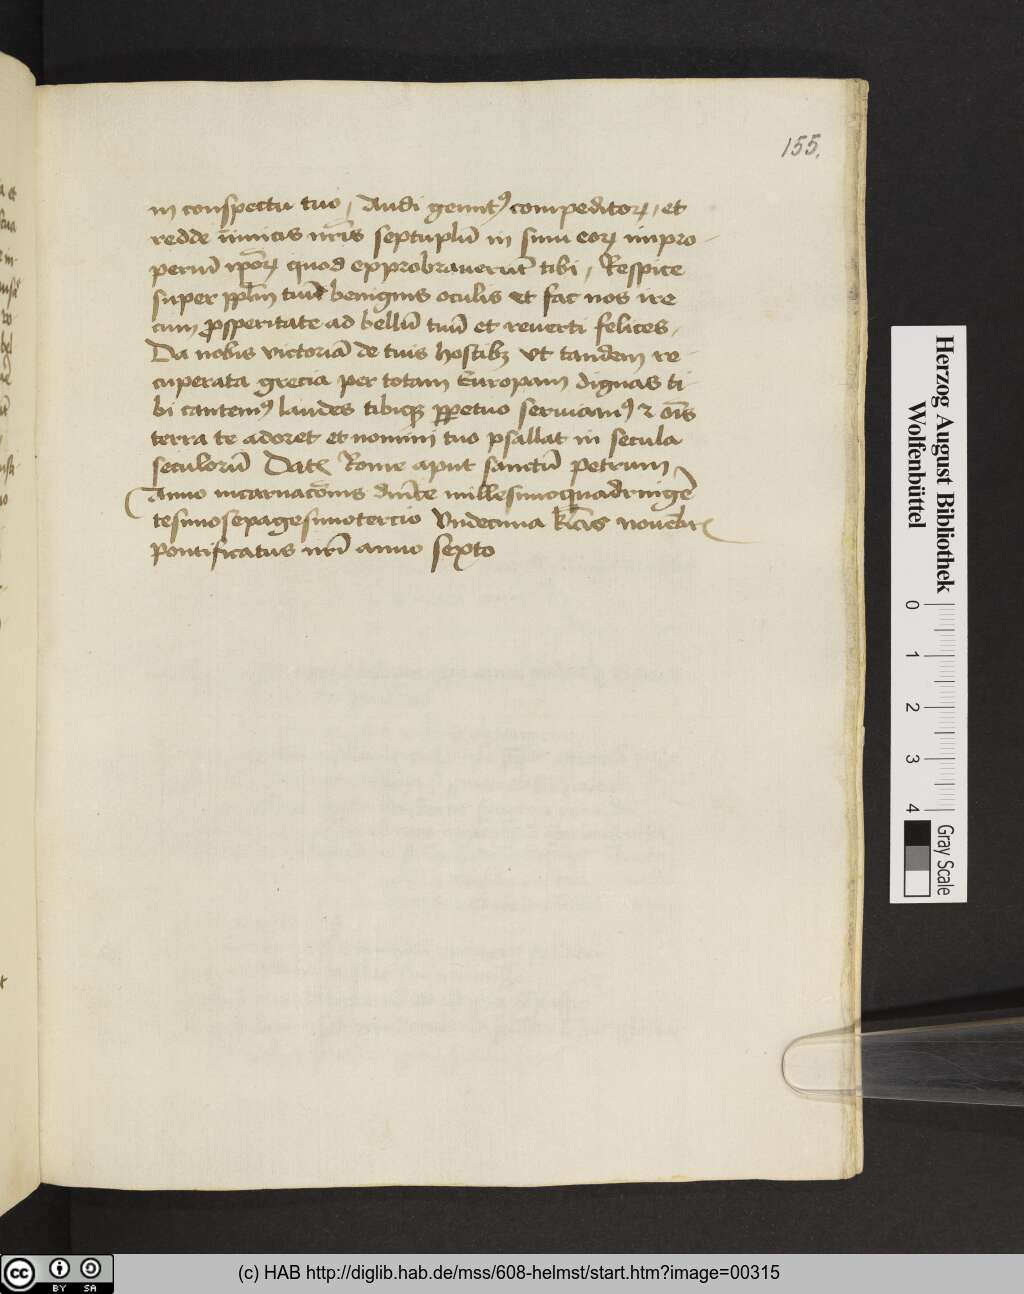 155.
in conspectu tuo, Audi gemitꝰ compeditoꝝ, et
redde inimicis nr̄is septuplū in sinu eoꝝ impro-
periū ip̄oꝝ quod exprobraverūt tibi, Respice
super pp̄lm tuū benignis oculis et fac nos ire
cum ꝓsperitate ad bellū tuū et reverti felices,
Da nobis victoriā de tuis hostibꝫ vt tandem re-
cuperata grecia per totam Europam dignas ti-
bi cantemꝰ laudes tibiqꝫ ꝑpetuo serviamꝰ ⁊ om̄is
terra te adoret et nomini tuo psallat in secula
seculorū Datꝭ Rome aput sanctū Petrum
Anno incarnacōnis dn̄ice millesimoquadringē
tesimosexagesimotercio Vndecima kl̄as novēbrꝭ
Pontificatus nr̄i anno sexto
Herzog August Bibliothek
Wolfenbüttel
0 1 2 3 4
Gray Scale
cc BY SA
(c) HAB http://diglib.hab.de/mss/608-helmst/start.htm?image=00315